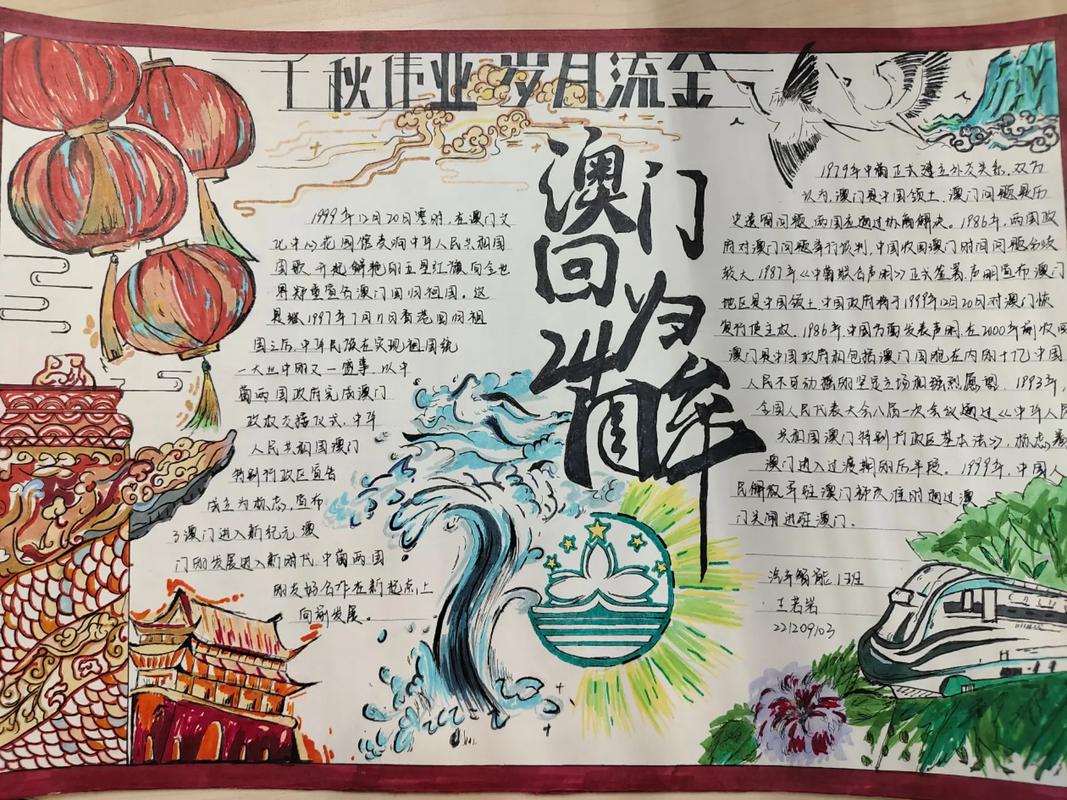 千秋伟业 岁月流金
澳门
回归
告目牟
1999年12月20日零时，在澳门文
化中心花园馆奏响中华人民共和国
国歌 升起鲜艳的五星红旗向全世
界郑重宣告澳门回归祖国。这
是继1997年7月1日香港回归祖
国之后，中华民族在实现祖国统
一大业中的又一盛事。以中
葡两国政府完成澳门
政权交接仪式，中华
人民共和国澳门
特别行政区宣告
成立为标志，宣布
了澳门进入新纪元 澳
门的发展进入新时代，中葡两国
的友好合作在新起点上
向前发展。
1979年中葡正式建立外交关系，双方
认为，澳门是中国领土，澳门问题是历
史遗留问题，两国应通过协商解决。1986年，两国政
府对澳门问题举行谈判，中国收回澳门时间问题分歧
较大 1987年《中葡联合声明》正式签署，声明宣布澳门
地区是中国领土 中国政府将于1999年12月20日对澳门恢
复行使主权。1986年，中国方面发表声明，在2000年前收回
澳门是中国政府和包括澳门同胞在内的十亿中国
人民不可动摇的坚定立场和强烈愿望。1993年，
全国人民代表大会八届一次会议通过《中华人民
共和国澳门特别行政区基本法》，标志着
澳门进入过渡期的后半段。1999年，中国人
民解放军驻澳门部队准时通过澳
门关闸进驻澳门。
汽车智能1班
王若岩
22120903